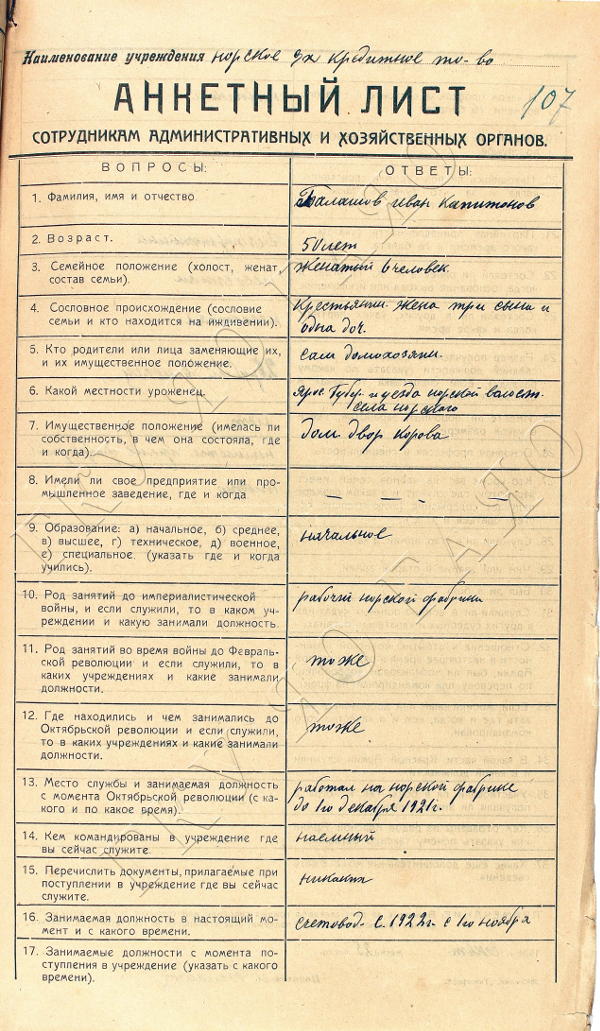 Наименование учреждения норское з/х кредитное то-во
107
АНКЕТНЫЙ ЛИСТ
СОТРУДНИКАМ АДМИНИСТРАТИВНЫХ И ХОЗЯЙСТВЕННЫХ ОРГАНОВ.
ВОПРОСЫ: ОТВЕТЫ:
1. Фамилия, имя и отчество Балашов иван капитонов
2. Возраст. 50 лет
3. Семейное положение (холост, женат, женатый 6 человек
состав семьи).
4. Сословное происхождение (сословие Крестьянин. жена три сына и
семьи и кто находится на иждивении). одна доч.
5. Кто родители или лица заменяющие их, сам домохозяин.
и их имущественное положение.
6. Какой местности уроженец. Ярос Губер. и уезда норской волост.
села норского
7. Имущественное положение (имелась ли дом двор корова
собственность, в чем она состояла, где
и когда).
8. Имели ли свое предприятие или про- — — —
мышленное заведение, где и когда
9. Образование: а) начальное, б) среднее, начальное
в) высшее, г) техническое, д) военное,
е) специальное. (указать где и когда
учились).
10. Род занятий до империалистической рабочий норской фабрики
войны, и если служили, то в каком уч-
реждении и какую занимали должность.
11. Род занятий во время войны до Февраль- тоже
ской революции и если служили, то в
каких учреждениях и какие занимали
должности.
12. Где находились и чем занимались до тоже
Октябрьской революции и если служили,
то в каких учреждениях и какие занимали
должности.
13. Место службы и занимаемая должность работал на норской фабрике
с момента Октябрьской революции (с ка- до 1го декабря 1921г.
кого и по какое время).
14. Кем командированы в учреждение где наемный
вы сейчас служите.
15. Перечислить документы, прилагаемые при никакия
поступлении в учреждение где вы сейчас
служите.
16. Занимаемая должность в настоящий мо- счетовод с 1922г. с 1го ноября
мент и с какого времени.
17. Занимаемые должности с момента по-
ступления в учреждение (указать с какого
времени).
ГКУ ЯО ГАЯО
ГКУ ЯО ГАЯО